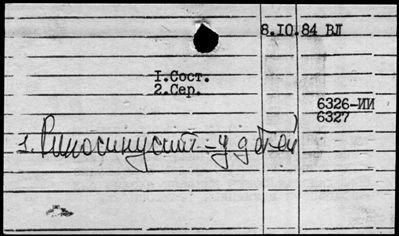 8.IO.84 ВЛ
I.Сост.
2.Сер.
6326-ИИ
6327
1. Риносинусит - у детей